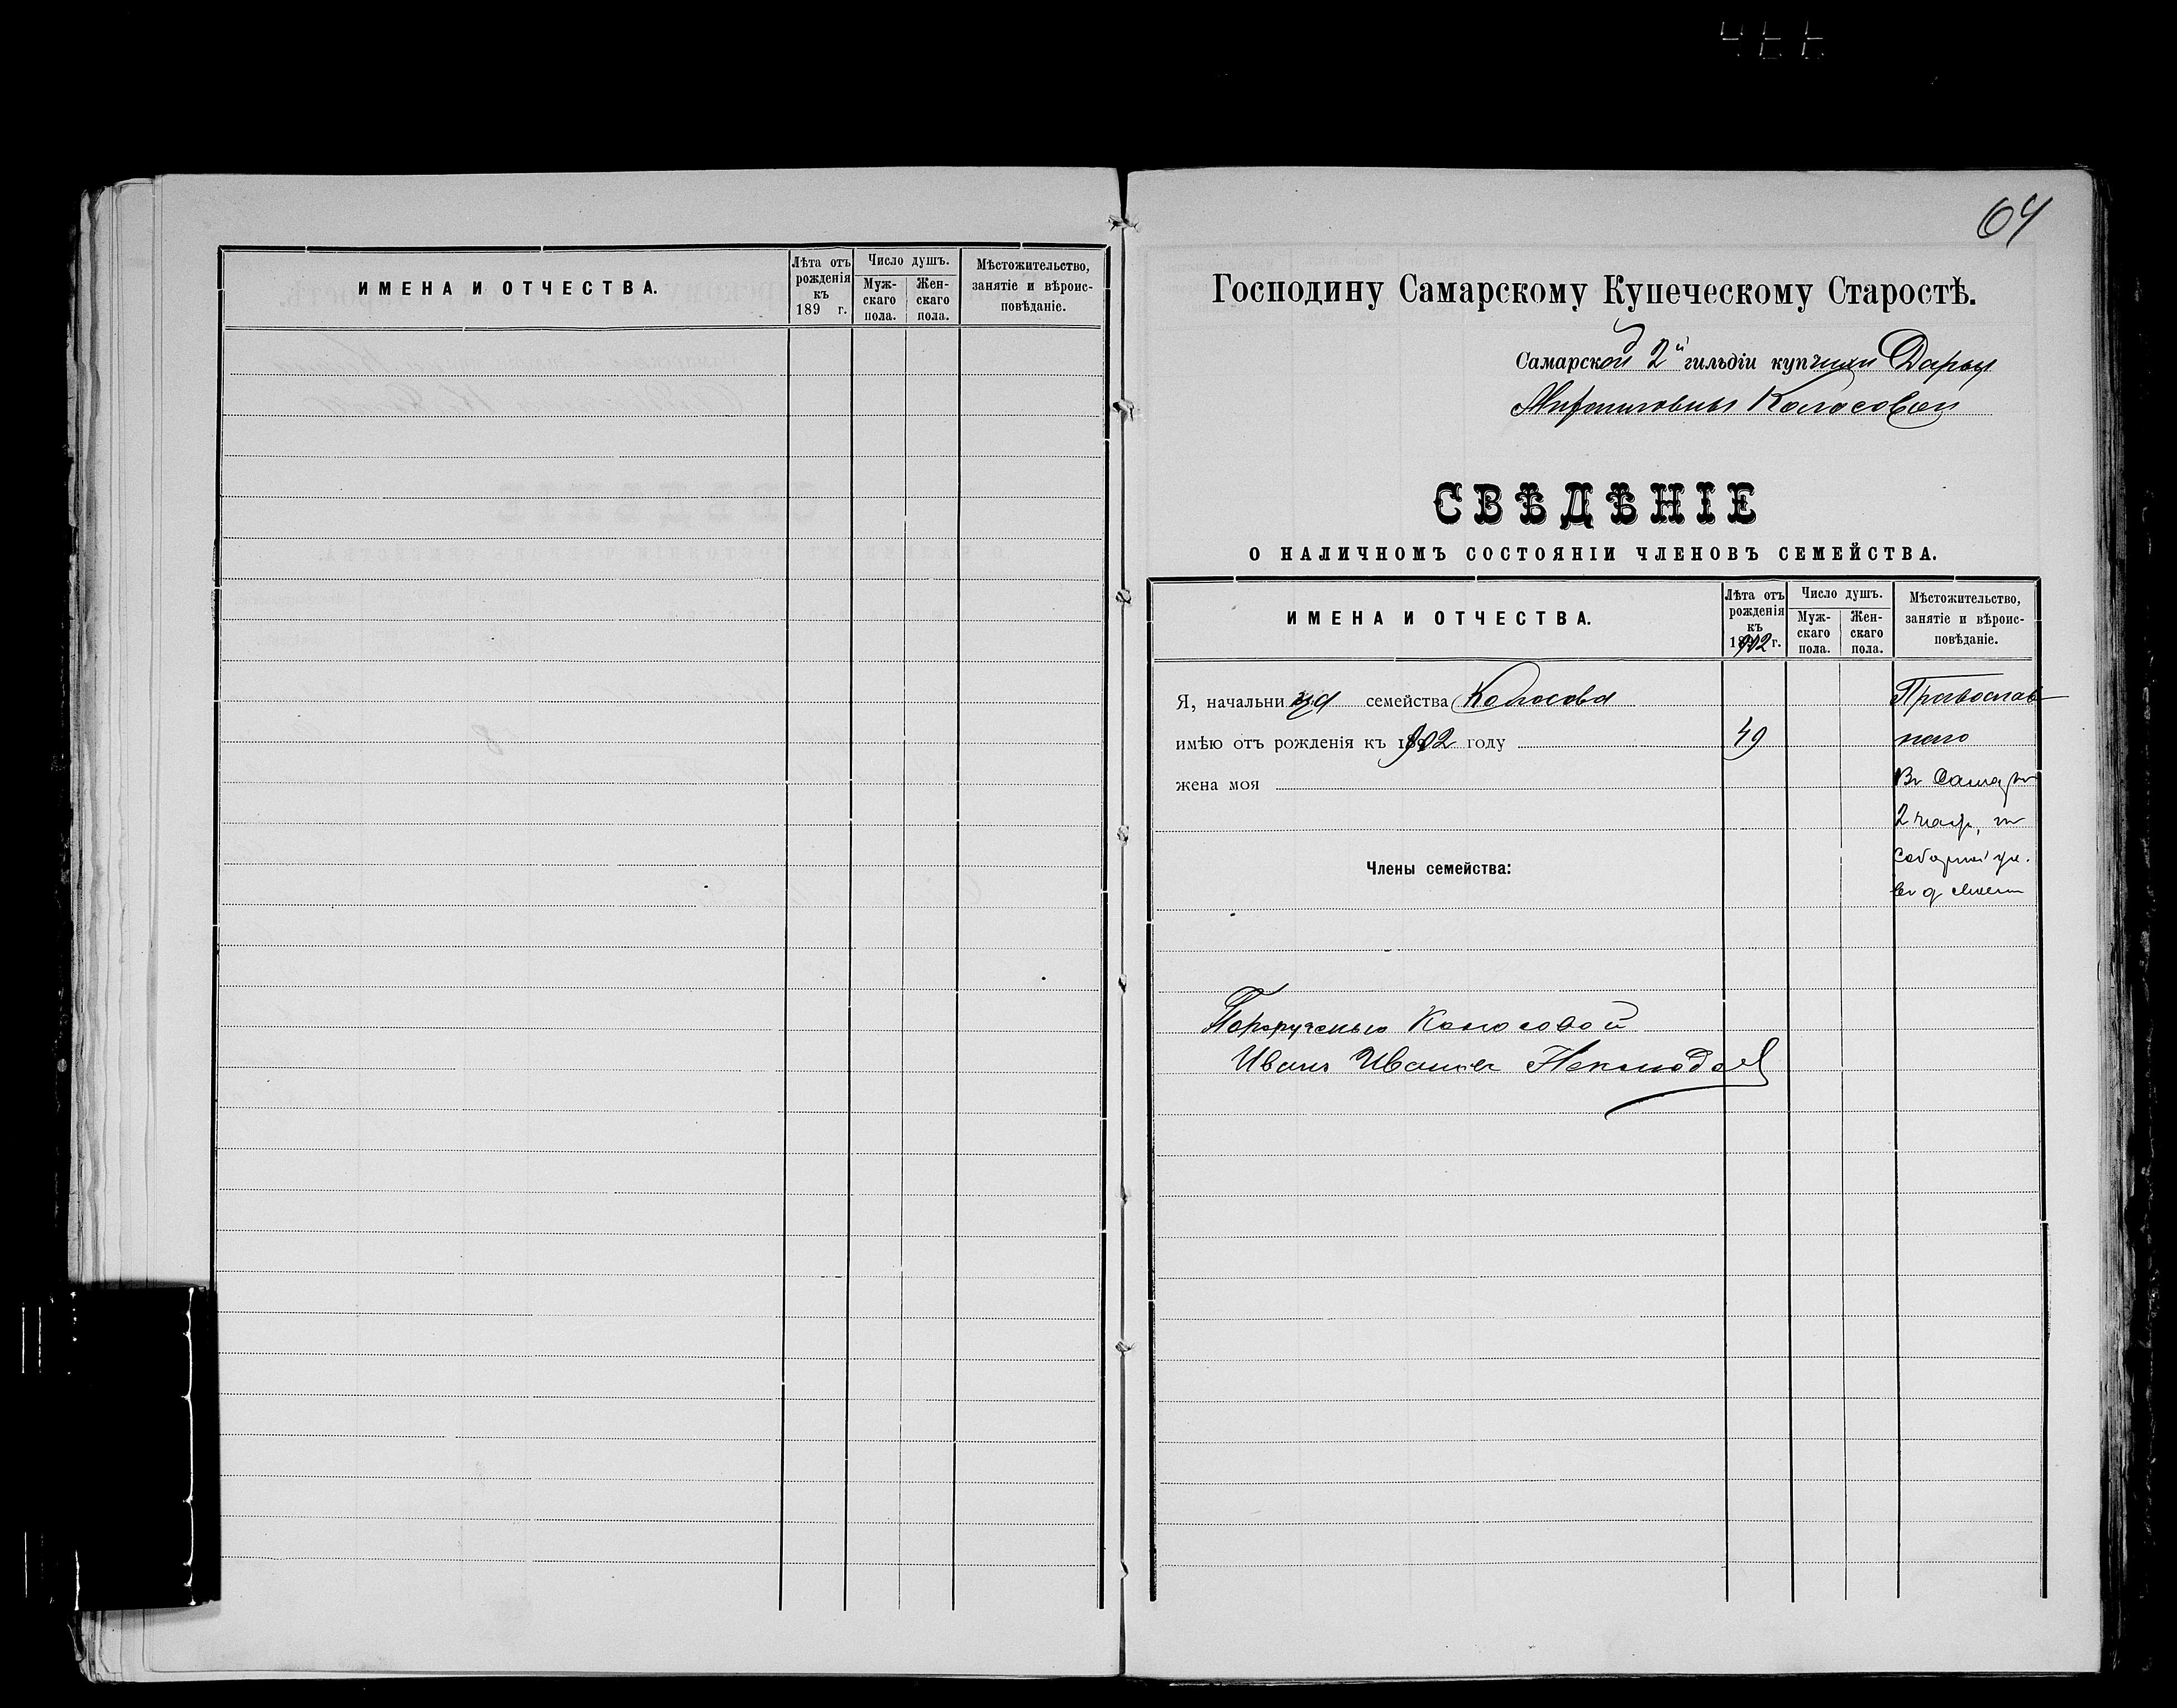 ИМЕНА И ОТЧЕСТВА.
Лѣта отъ рожденія къ 189 г.
Число душъ.
Мужскаго пола.
Женскаго пола.
Мѣстожительство, занятіе и вѣроисповѣданіе.
64
Господину Самарскому Купеческому Старостѣ.
Самарской 2й гильдіи купчихи Дарьи
Колосовой
СВѢДѢНІЕ
О НАЛИЧНОМЪ СОСТОЯНІИ ЧЛЕНОВЪ СЕМЕЙСТВА.
ИМЕНА И ОТЧЕСТВА.
Лѣта отъ рожденія къ 1902 г.
Число душъ.
Мужскаго пола.
Женскаго пола.
Мѣстожительство, занятіе и вѣроисповѣданіе.
Я, начальница семейства Колосова
Православ
имѣю отъ рожденія къ 1902 году 49
наго
жена моя
Въ Самарѣ
2 част,
Члены семейства:
Соборной ул.
въ д
По порученью Колосовой
Иванъ Ивановъ